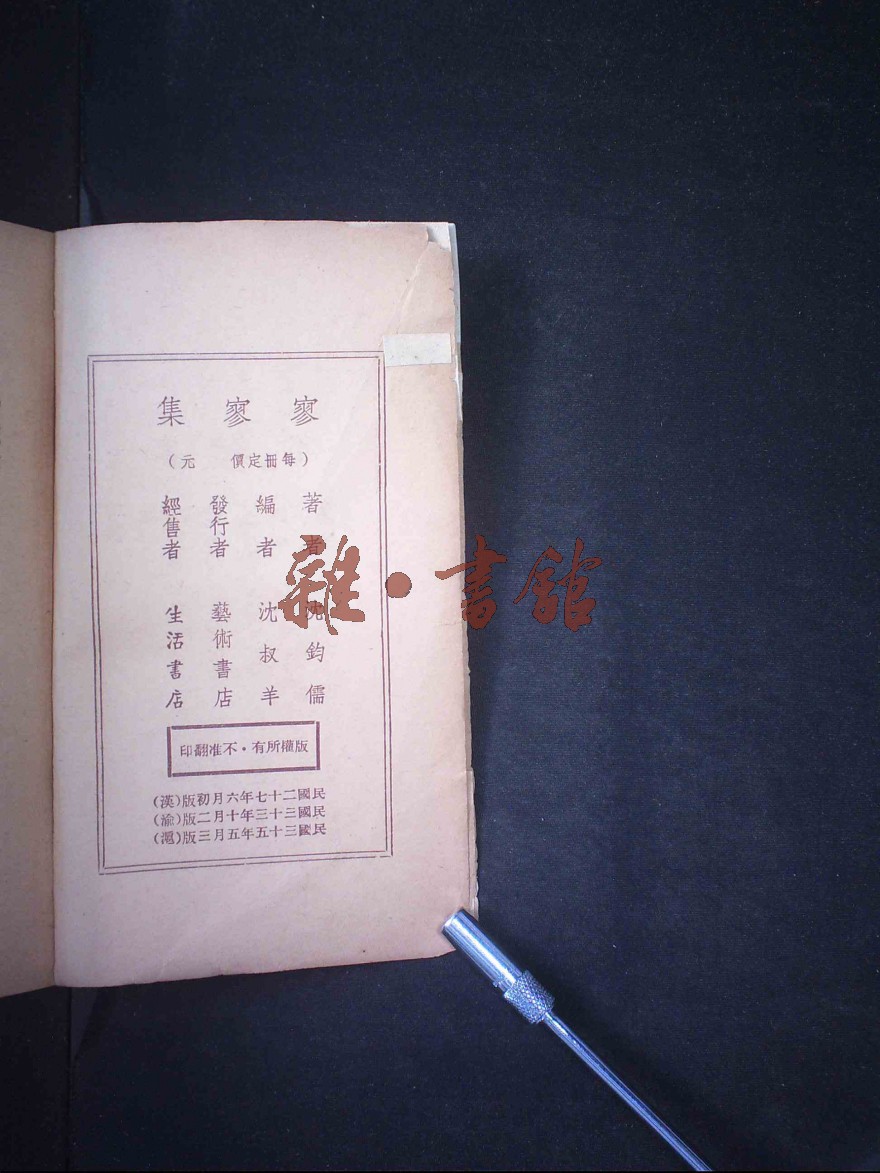 寥寥集
(每冊定價　元)
著者　沈鈞儒
編者　沈叔羊
發行者　藝術書店
經售者　生活書店
版權所有・不准翻印
民國二十七年六月初版(漢)
民國三十三年十月二版(渝)
民國三十五年五月三版(滬)
雜・書館